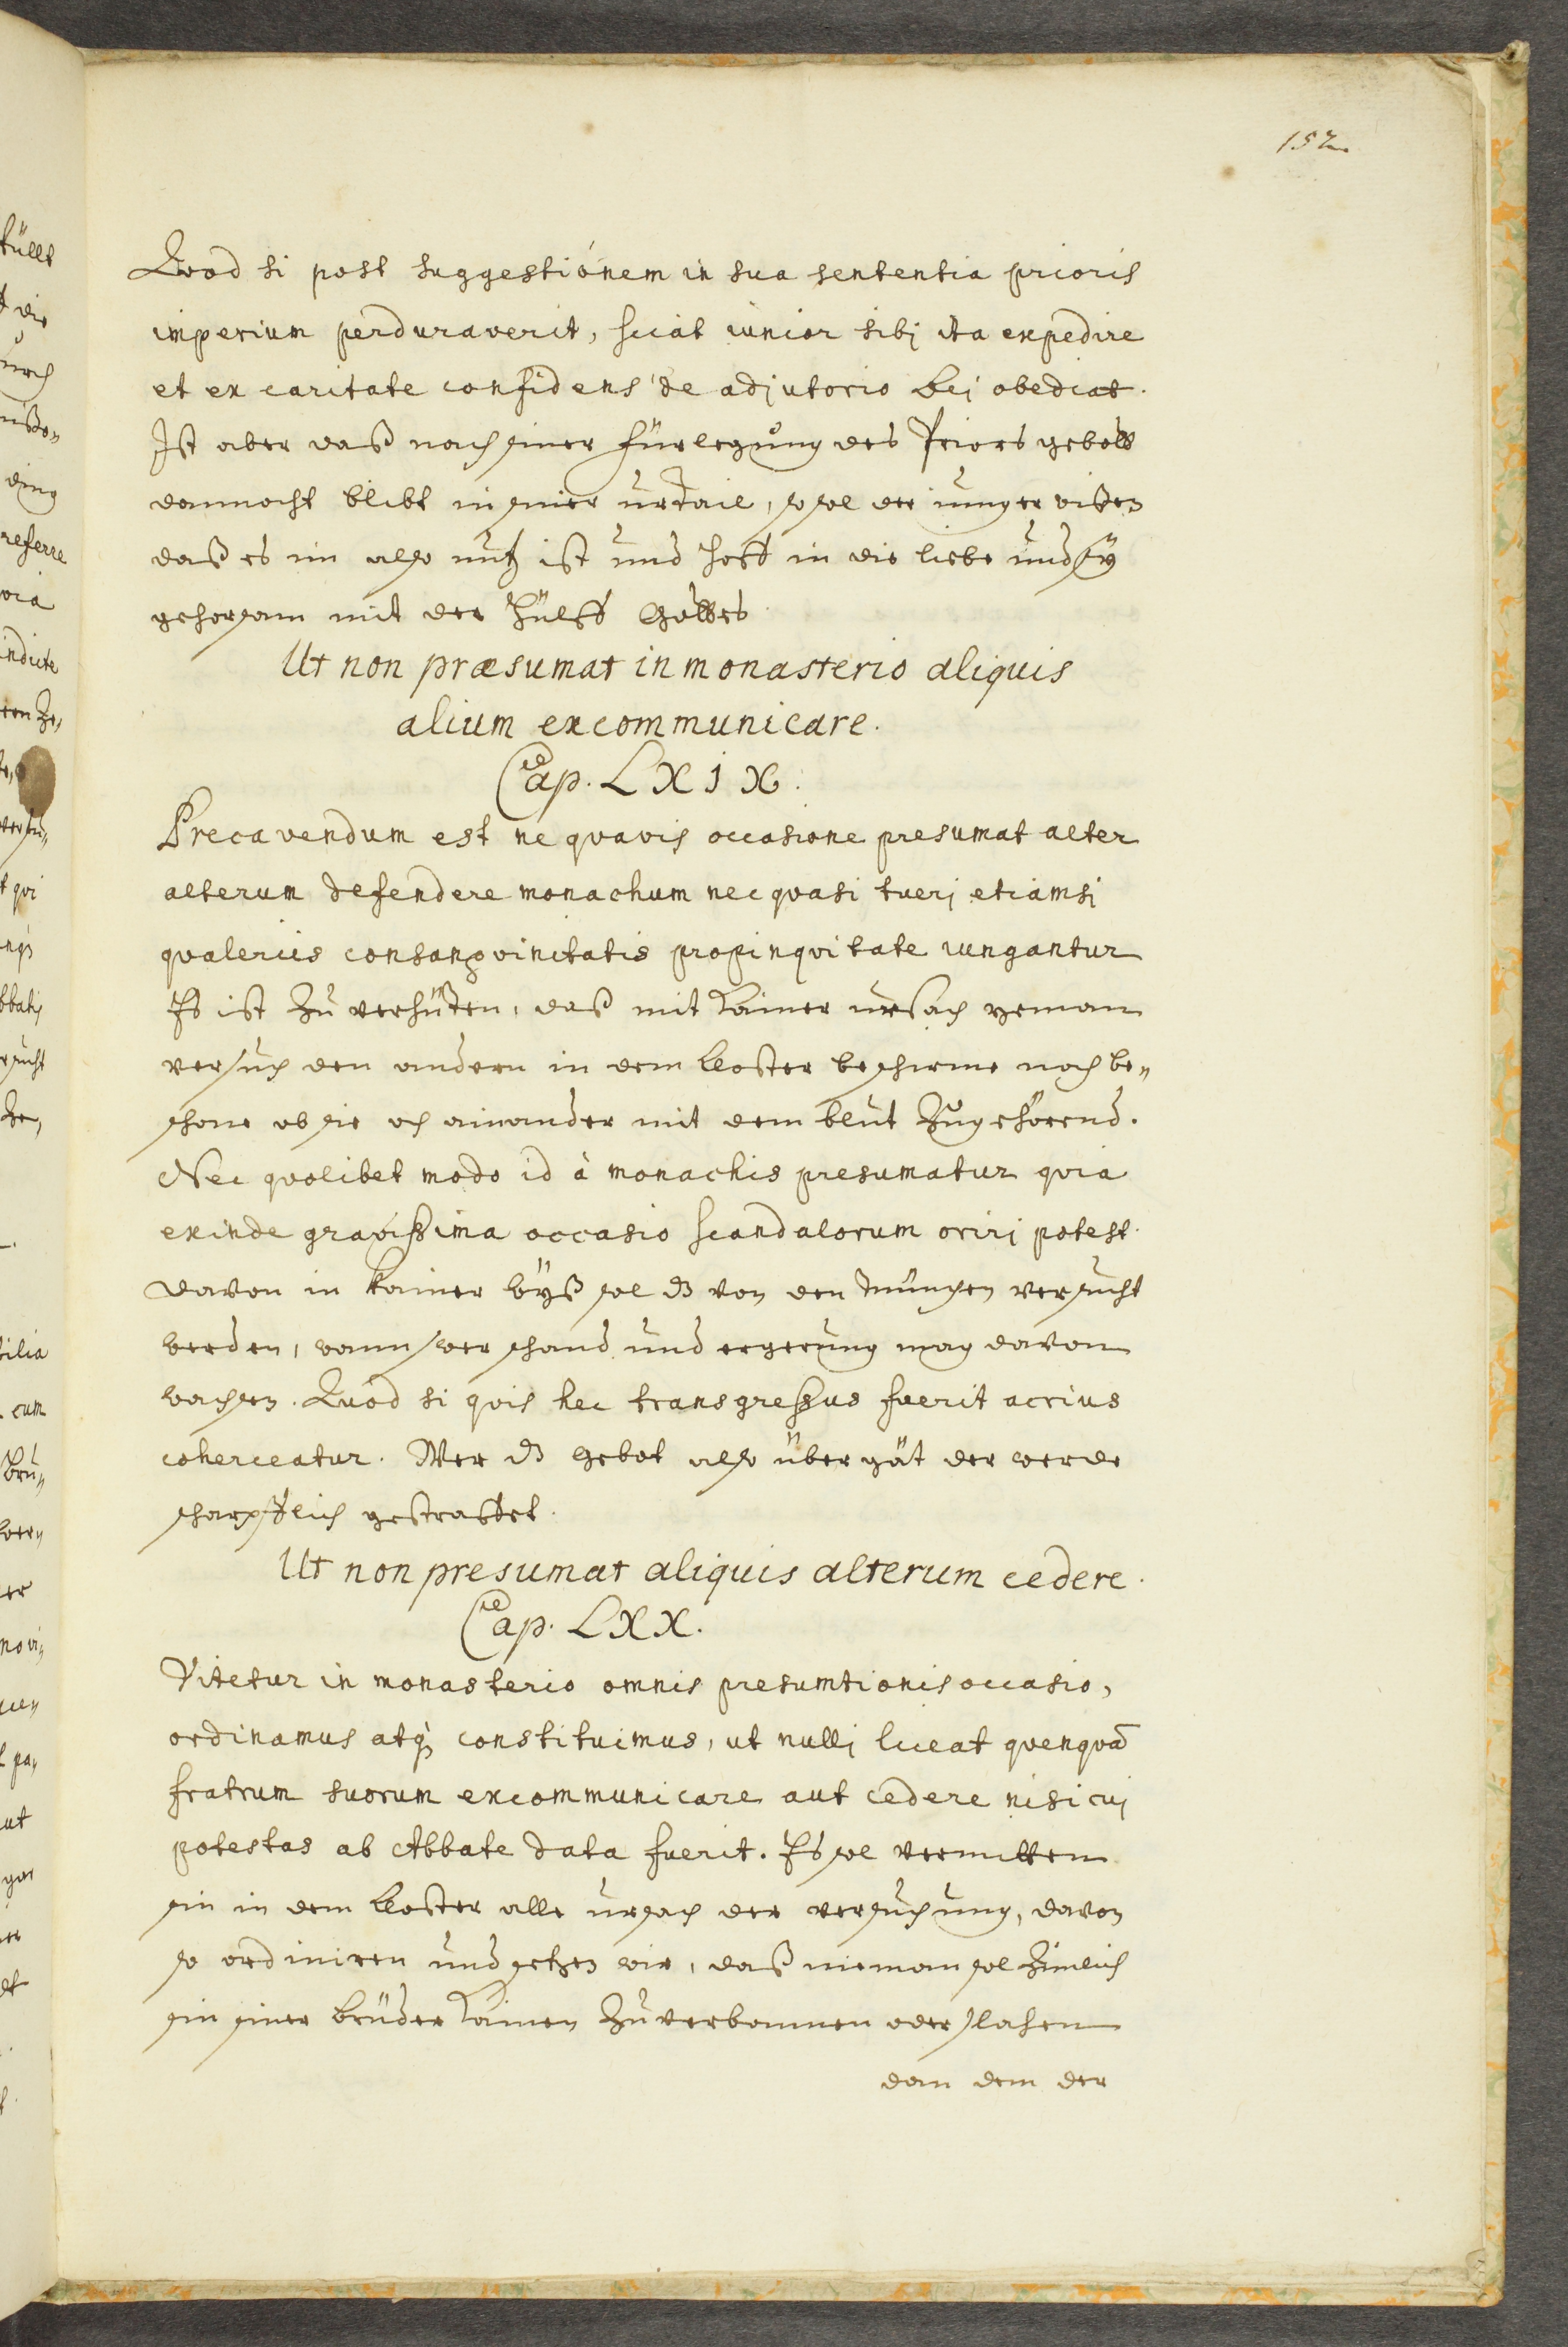 152
Quod si post suggestionem in sua sententia prioris
imperium perduraverit, sciat iunior sibj ita expedire
et ex caritate confidens de adjutorio Dei obediat.
Ist aber daß nach siner fürlegung des Priors gebott
dannocht blibt in siner urtail, so sol der iunger wissen
daß es im also nutz ist und hoff in die liebe und sÿ
gehorsam mit der hülff Gottes
Ut non præsumat in monasterio aliquis
alium excommunicare.
Cap. LXIX.
Precavendum est ne quavis occasione presumat alter
alterum defendere monachum nec quasi tuerj etiamsi
qualeriis consanguinitatis propinquitate iungantur
Es ist zu verhüten, daß mit kainer ursach yeman
versuch den andern in dem closter beschirme noch be„
schone ob sie och ainander mit dem blut zugehörend.
Nec quolibet modo id à monachis presumatur quia
exinde gravissima occasio scandalorum orirj potest.
davon in kainer wÿß sol dz von den münchen versucht
werden, wann swer schand und ergerung mag davon
wachsen. Quod si quis hec transgressus fuerit acrius
coherceatur. Wer dz gebot also übergät der werde
scharpflich gestraffet.
Ut non presumat aliquis alterum cedere.
Cap. LXX.
Vitetur in monasterio omnis presumtionis occasio,
ordinamus atq; constituimus, ut nullj liceat quenquā
fratrum suorum excommunicare aut cedere nisi cuj
potestas ab Abbate data fuerit. Es sol vermitten
sin in dem closter alle ursach der versuchung, davon
so ordiniren und setzen wir, daß nieman sol zimlich
sin siner brüder kainen zu verbannen oder slahen
dan dem der